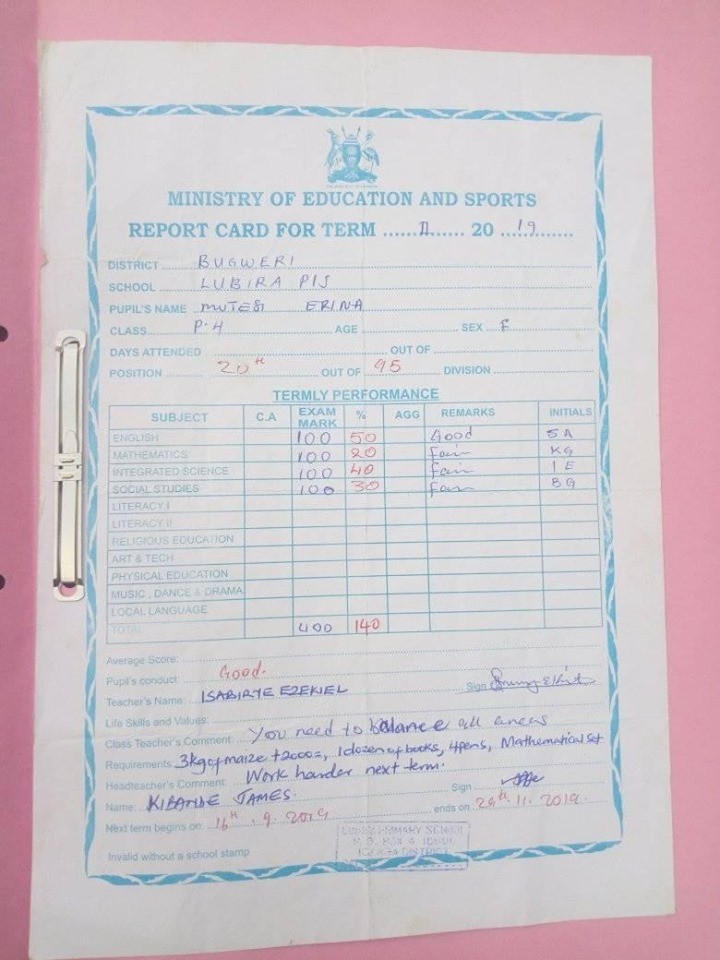 MINISTRY OF EDUCATION AND SPORTS
REPORT CARD FOR TERM ...... II ...... 20 ...19...
DISTRICT BUGWERI
SCHOOL LUBIRA P/S
PUPIL'S NAME MUTESI ERINA
CLASS P.4 AGE SEX F
DAYS ATTENDED OUT OF
POSITION 20th OUT OF 95 DIVISION
TERMLY PERFORMANCE
SUBJECT C.A EXAM MARK % AGG REMARKS INITIALS
ENGLISH 100 50 Good SA
MATHEMATICS 100 20 Fair KG
INTEGRATED SCIENCE 100 40 Fair IE
SOCIAL STUDIES 100 30 Fair BG
LITERACY I
LITERACY II
RELIGIOUS EDUCATION
ART & TECH
PHYSICAL EDUCATION
MUSIC, DANCE & DRAMA
LOCAL LANGUAGE
TOTAL 400 140
Average Score:
Pupil's conduct: Good.
Teacher's Name: ISABIRYE EZEKIEL Sign
Life Skills and Values:
Class Teacher's Comment: You need to balance all areas
Requirements 3kg of maize +2000=, 1 dozen of books, 4pens, Mathematical set
Headteacher's Comment: Work harder next term.
Name: KIBANDE JAMES. Sign
Next term begins on: 16th . 9. 2019 ends on 29th. 11. 2019
Invalid without a school stamp
PRIMARY SCHOOL
P.O. BOX
DISTRICT